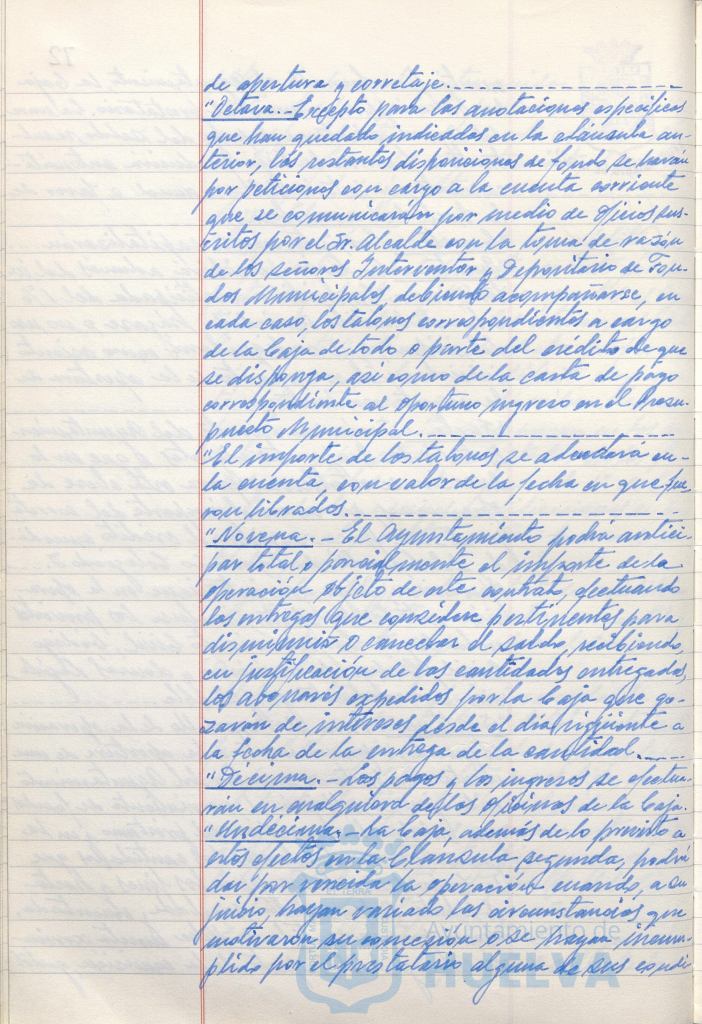 de apertura y corretaje.
"Octava.- Excepto para las anotaciones específicas
que han quedado indicadas en la cláusula an-
terior, las restantes disposiciones de fondo se harán
por peticiones con cargo a la cuenta corriente
que se comunicarán por medio de oficios sus-
critos por el Sr. Alcalde con la toma de razón
de los señores Interventor y Depositario de Fon-
dos Municipales, debiendo acompañarse, en
cada caso, los talones correspondientes a cargo
de la Caja de todo o parte del crédito de que
se disponga, así como de la carta de pago
correspondiente al oportuno ingreso en el Presu-
puesto Municipal.
"El importe de los talones se adeudara en-
la cuenta, con valor de la fecha en que fue-
ron librados.
"Novena.- El Ayuntamiento podrá antici-
par total o parcialmente el importe de la
operación objeto de este contrato, efectuando
las entregas que considere pertinentes para
disminuir o cancelar el saldo, recibiendo,
en justificación de las cantidades entregadas,
los abonarés expedidos por la Caja que go-
zarán de intereses desde el día siguiente a
la fecha de la entrega de la cantidad.
"Décima.- Los pagos y los ingresos se efectua-
rán en cualquiera de las oficinas de la Caja.
"Undécima.- La Caja, además de lo previsto a
estos efectos en la Cláusula segunda, podrá
dar por vencida la operación cuando, a su
juicio, hayan variado las circunstancias que
motivaron su concesión o se hayan incum-
plido por el prestatario alguna de sus condi
Ayuntamiento de
HUELVA